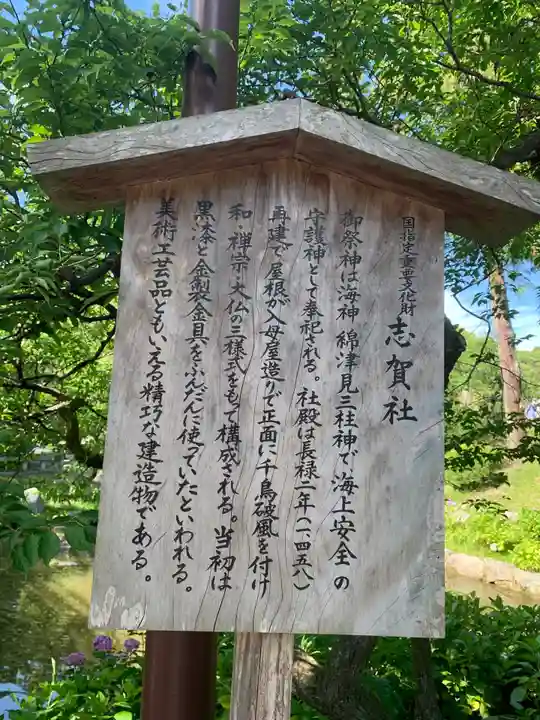 国指定重要文化財
志賀社
御祭神は海神 綿津見三柱神で、海上安全の
守護神として奉祀される。社殿は長禄二年(一、四五八)
再建で、屋根が入母屋造りで正面に千鳥破風を付け
和・禅宗・大仏の三様式をもって構成される。当初は
黒漆と金製金具をふんだんに使っていたといわれる。
美術工芸品ともいえる精巧な建造物である。